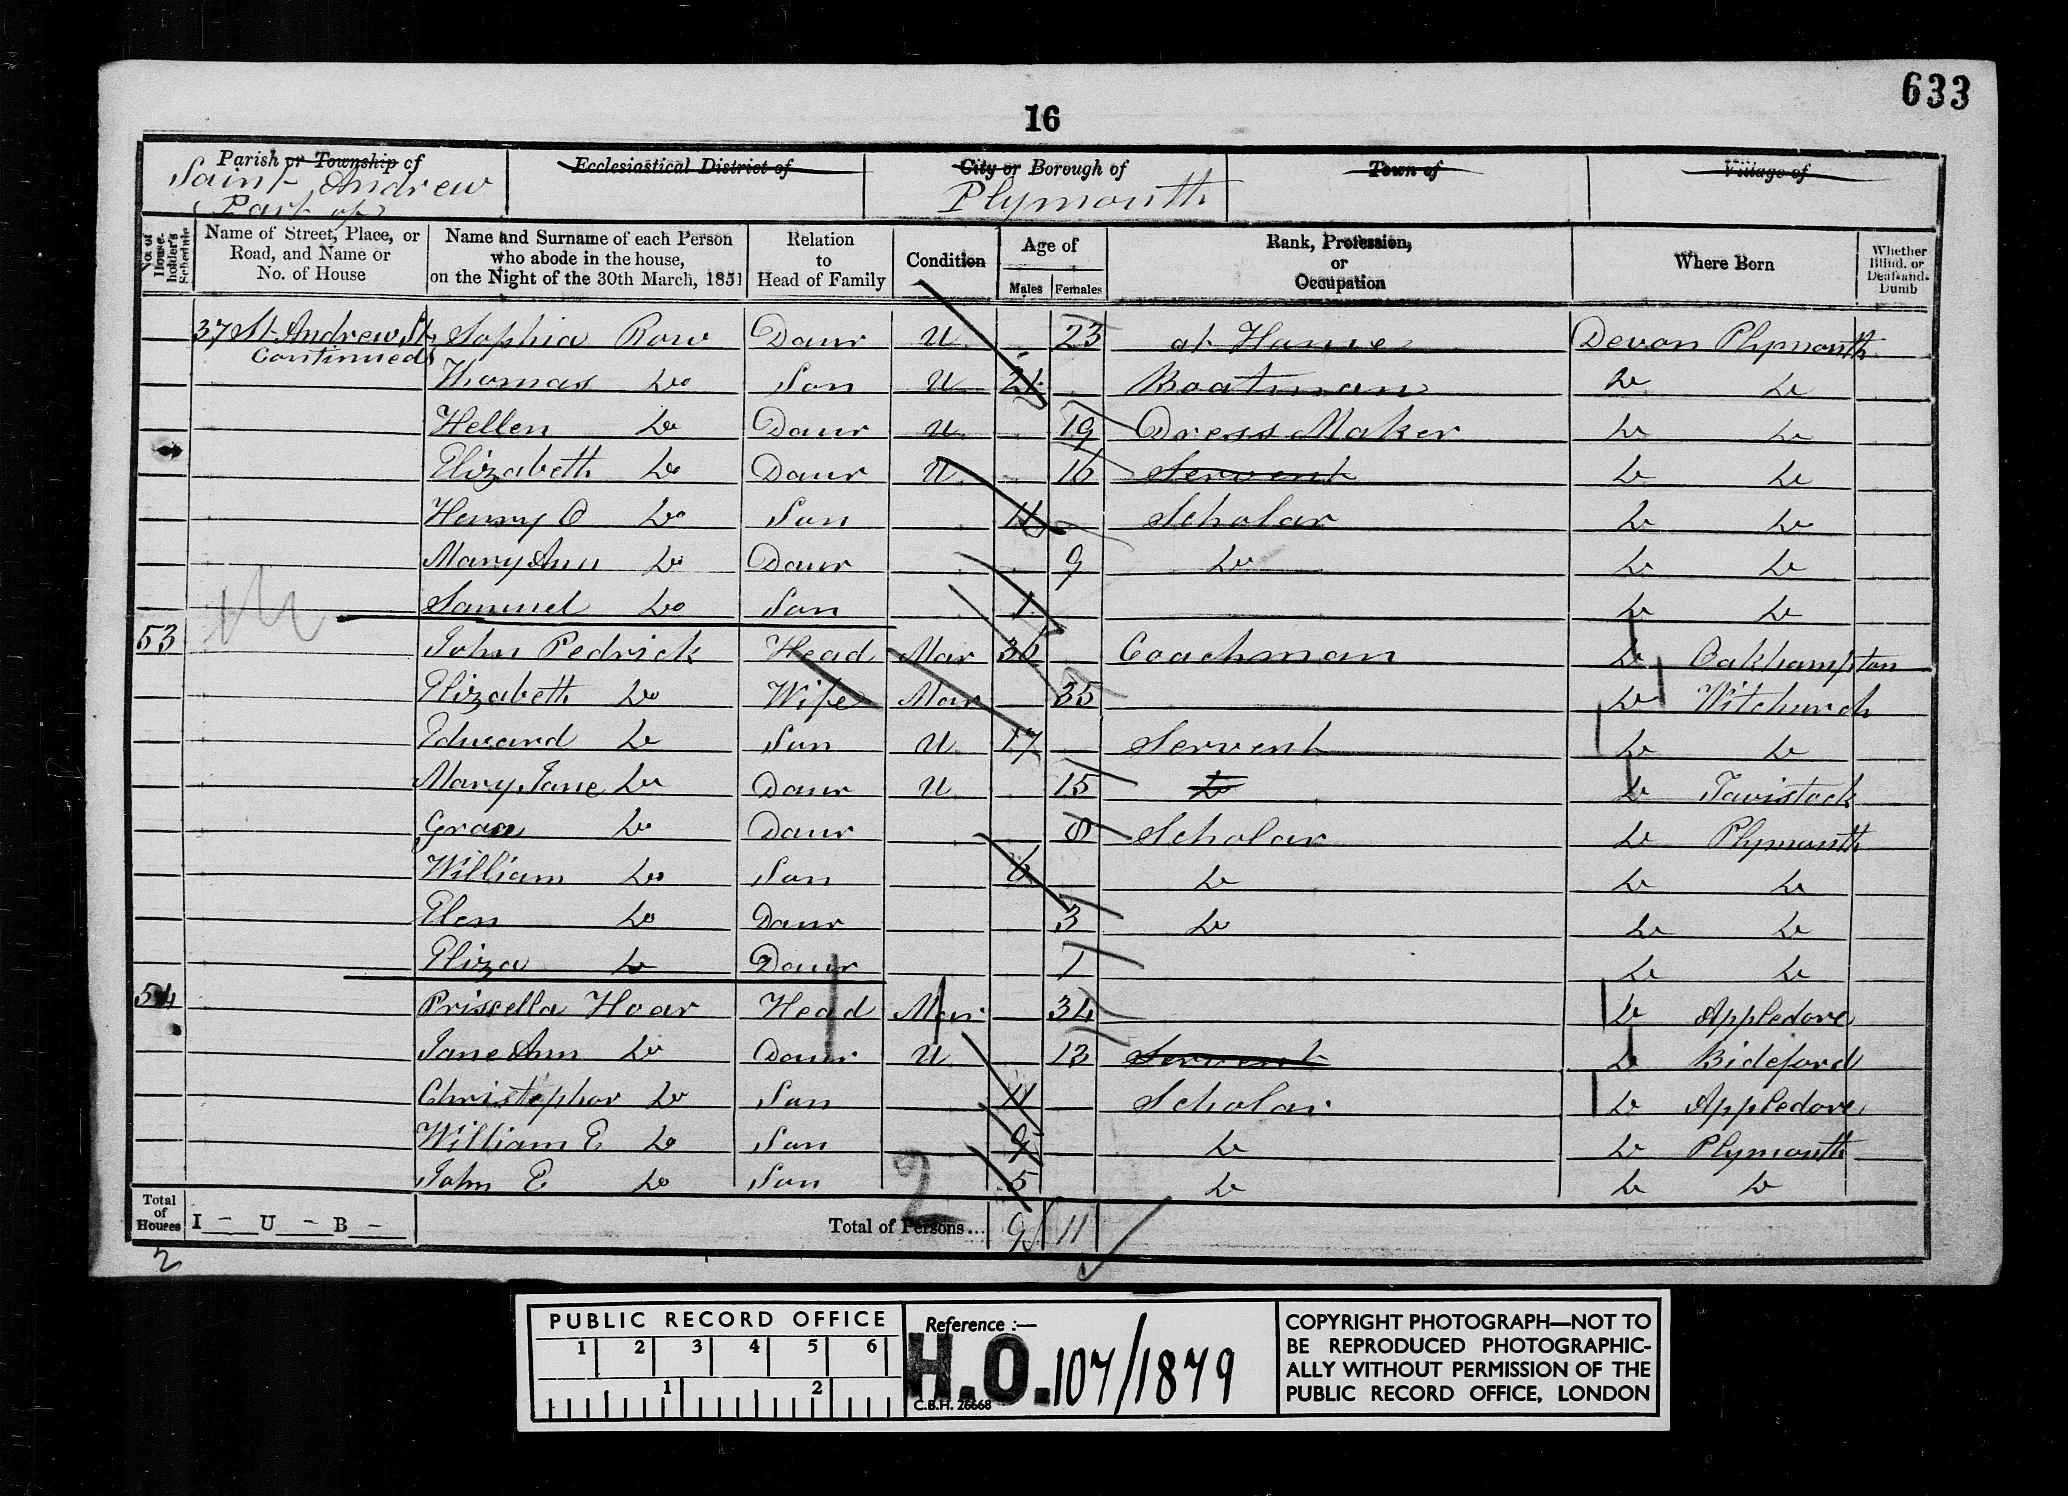 633
16
Parish or Township of Ecclesiastical District of City or Borough of Town of Village of
Saint Andrew Plymouth
Part of
No. of House-holder's Schedule
Name of Street, Place, or Road, and Name or No. of House
Name and Surname of each Person who abode in the house, on the Night of the 30th March, 1851
Relation to Head of Family
Condition
Age of
Males Females
Rank, Profession, or Occupation
Where Born
Whether Blind, or Deaf-and-Dumb
37 St Andrew St Sophia Row Daur U 23 at Home Devon Plymouth
Continued
Thomas Do Son U 21 Boatman Do Do
Hellen Do Daur U 19 Dress Maker Do Do
Elizabeth Do Daur U 16 Servent Do Do
Henry O Do Son 14 Scholar Do Do
Mary Ann Do Daur 9 Do Do Do
Samuel Do Son 1 Do Do
53 John Pedrick Head Mar 36 Coachman Do Oakhampton
Elizabeth Do Wife Mar 35 Do Witchurch
Edward Do Son U 17 Servent Do Do
Mary Jane Do Daur U 15 Do Do Tavistock
Grace Do Daur 8 Scholar Do Plymouth
William Do Son 6 Do Do Do
Elen Do Daur 3 Do Do Do
Eliza Do Daur 1 Do Do
54 Priscella Hoar Head Mar 34 Do Appledore
Jane Ann Do Daur U 13 Servent Do Bideford
Christephor Do Son 11 Scholar Do Appledore
William E Do Son 9 Do Do Plymouth
John E Do Son 5 Do Do Do
Total of Houses I — U — B — Total of Persons... 9 11
2
2
PUBLIC RECORD OFFICE
1 2 3 4 5 6
1 2
Reference :—
H.O. 107/1879
C.B.H. 26668
COPYRIGHT PHOTOGRAPH—NOT TO
BE REPRODUCED PHOTOGRAPHIC-
ALLY WITHOUT PERMISSION OF THE
PUBLIC RECORD OFFICE, LONDON